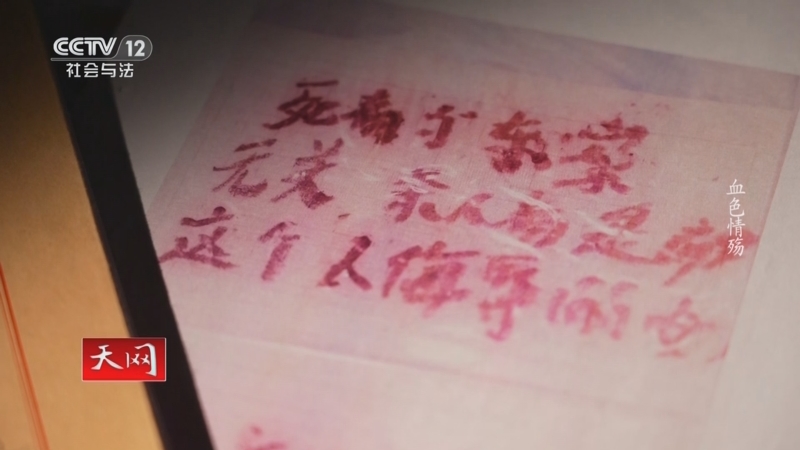 CCTV 12
社会与法
死者于本案
无关,杀人者是
这个人侮辱的女
血色情殇
天网